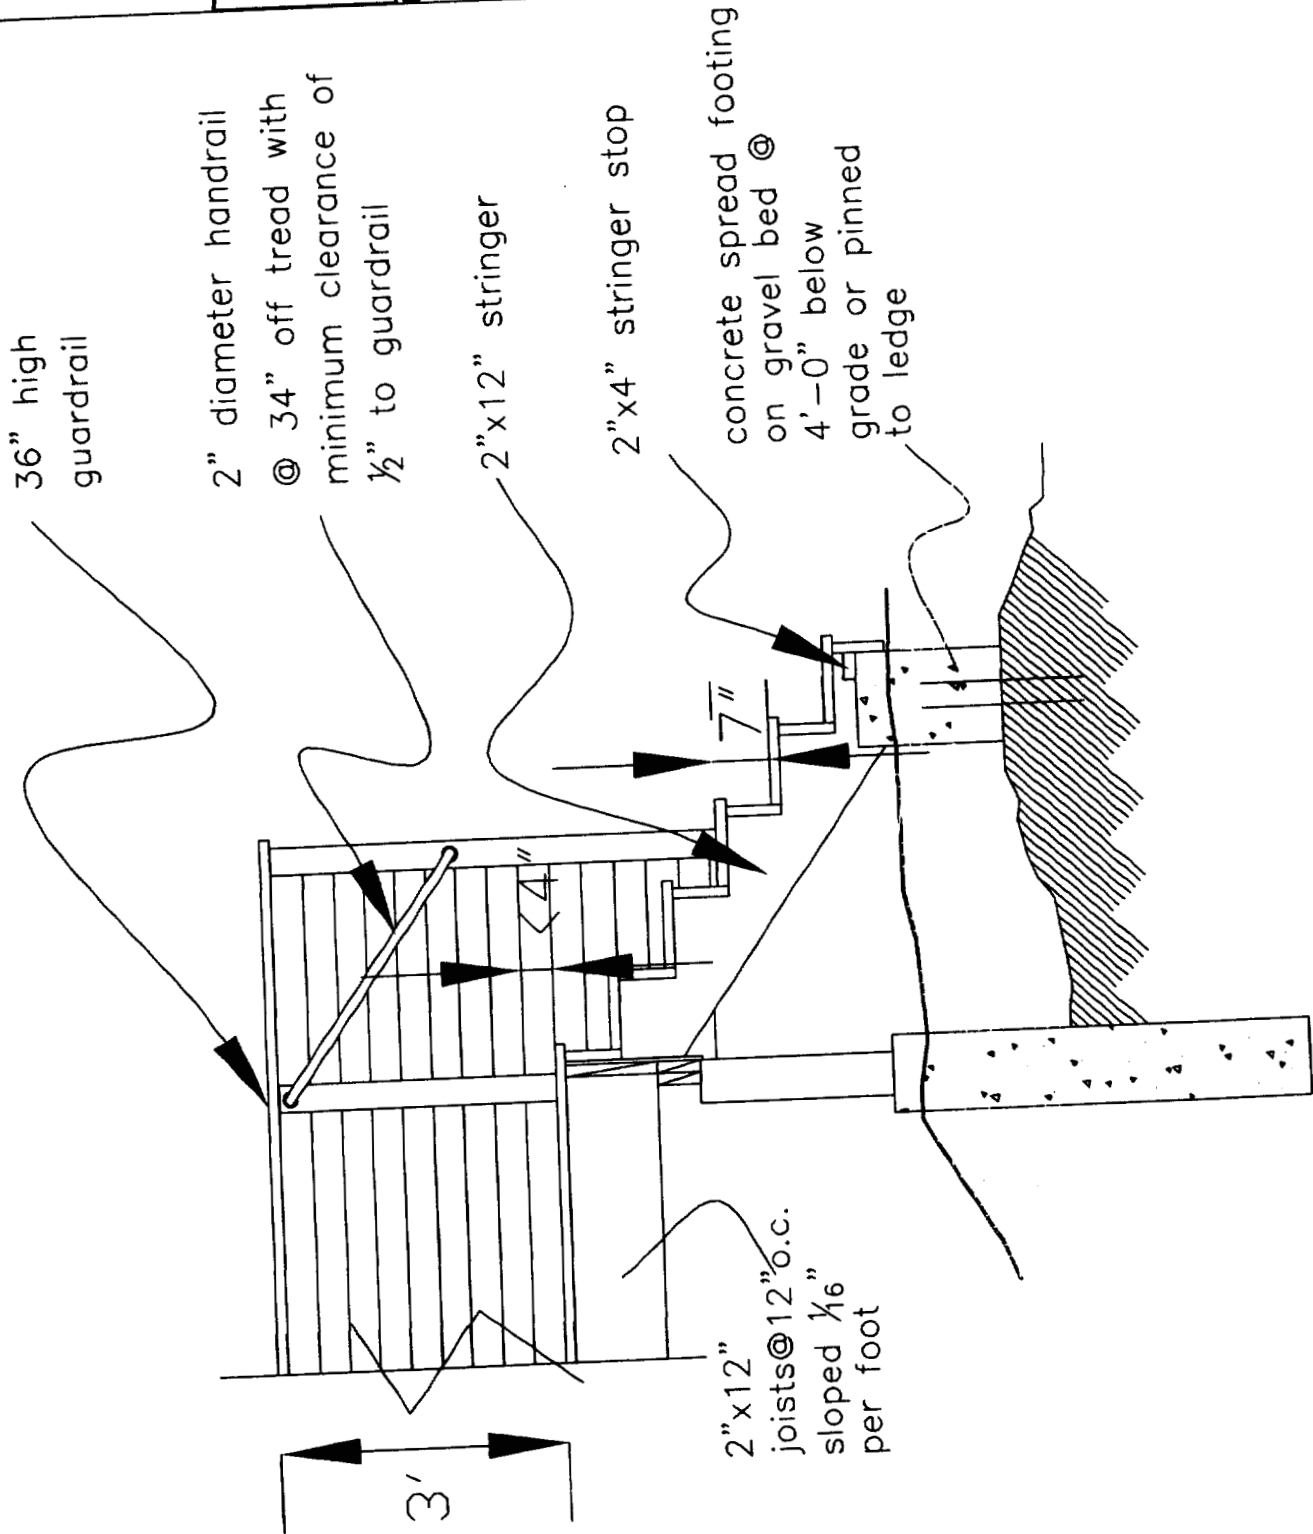 36" high
guardrail
2" diameter handrail
@ 34" off tread with
minimum clearance of
½" to guardrail
2"x12" stringer
2"x4" stringer stop
concrete spread footing
on gravel bed @
4'-0" below
grade or pinned
to ledge
7"
<4"
3'
2"x12"
joists@12"o.c.
sloped 1⁄16"
per foot